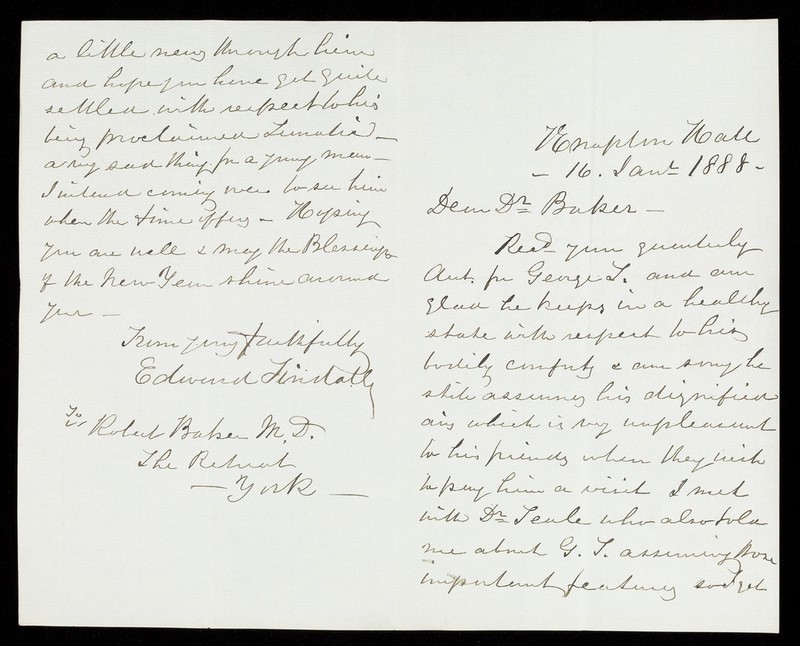 Knapton Hall
- 16. Jany 1888 -
Dear Dr Baker -
Recd your quarterly
Act. for George T. and am
glad he keeps in a healthy
state with respect to his
bodily comforts & am sorry he
still assumes his dignified
airs which is very unpleasant
to his friends when they wish
to pay him a visit I met
with Dr Teale who also told
me about G. T. assuming those
important features so I get
a little news through him
and hope you have got quite
settled with respect to his
being proclaimed Lunatic -
a very sad thing for a young man -
I intend coming over to see him
when the time offers - Hoping
you are well & may the Blessings
of the New Year shine around
you -
From yours faithfully
Edward Tindall
To Robert Baker M.D.
The Retreat
- York -